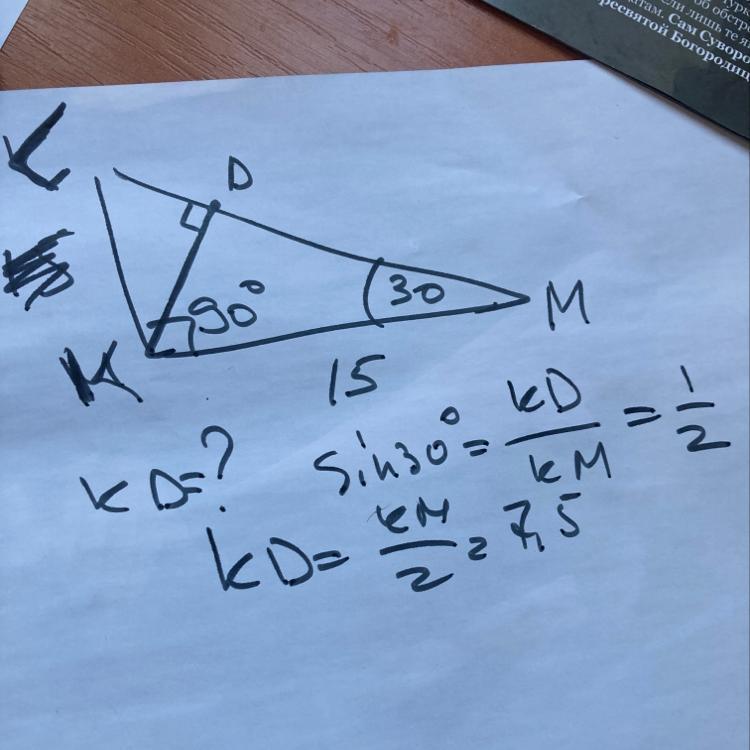 об обстр
если лишь те
Сам Суворо
ресвятой Богородиц
L
D
90°
30
M
K
15
KD=?
sin30° = KD/KM = 1/2
KD = KM/2 = 7,5